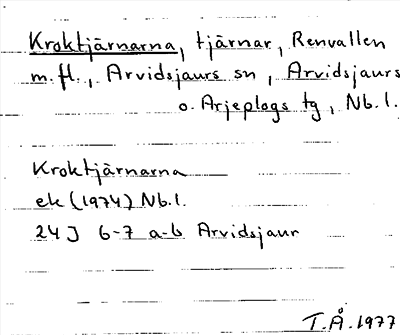 Kroktjärnarna, tjärnar, Renvallen
m.fl., Arvidsjaurs sn, Arvidsjaurs
o. Arjeplogs tg, Nb.l.
Kroktjärnarna
ek (1974) Nb.l.
24 J 6-7 a-b Arvidsjaur
T.Å. 1977